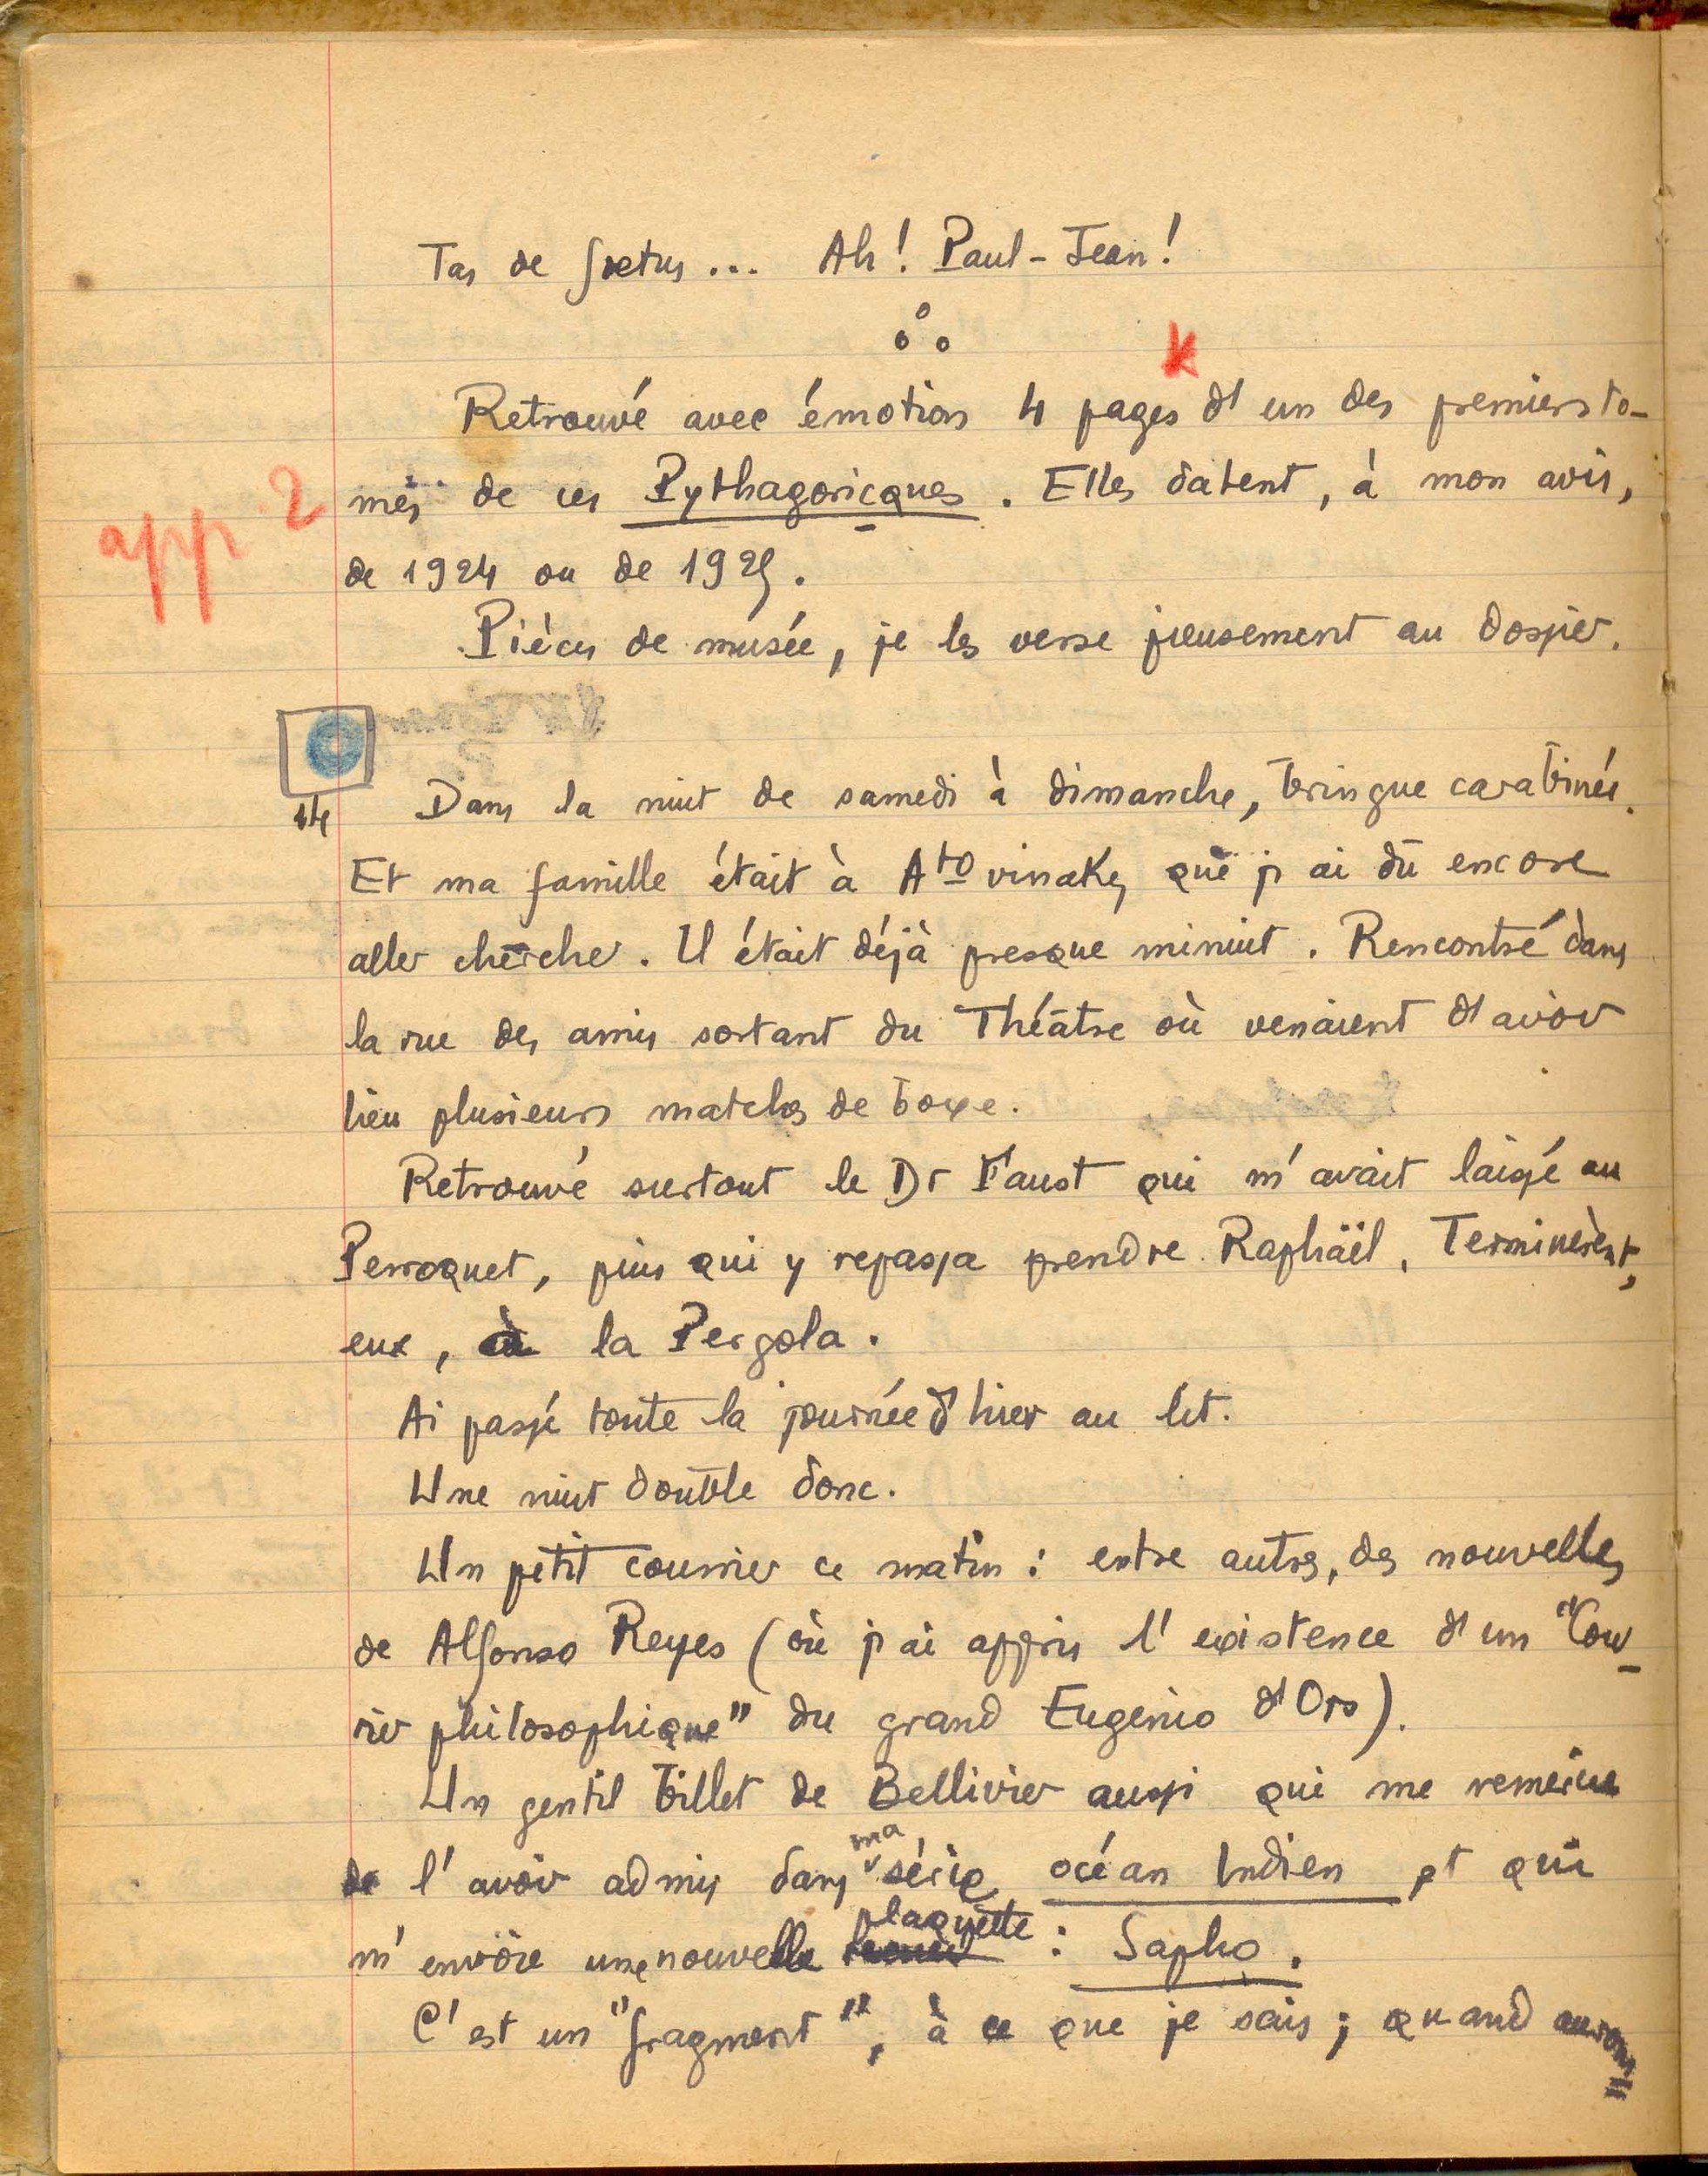 Tas de fœtus... Ah! Paul-Jean!
K
Retrouvé avec émotion 4 pages d'un des premiers to-
app. 2
mes de ces Pythagoricques. Elles datent, à mon avis,
de 1924 ou de 1925.
Pièces de musée, je les verse pieusement au dossier.
14
Dans la nuit de samedi à dimanche, bringue carabinée.
Et ma famille était à Atovinaky que j'ai dû encore
aller chercher. Il était déjà presque minuit. Rencontré dans
la rue des amis sortant du Théâtre où venaient d'avoir
lieu plusieurs matches de boxe.
Retrouvé surtout le Dr Faust qui m'avait laissé au
Perroquet, puis qui y repassa prendre Raphaël. Terminèrent,
eux, à la Pergola.
Ai passé toute la journée d'hier au lit.
Une nuit double donc.
Un petit courrier ce matin : entre autres, des nouvelles
de Alfonso Reyes (où j'ai appris l'existence d'un "Cour-
rier philosophique" du grand Eugenio d'Ors).
Un gentil billet de Bellivier aussi qui me remercie
de l'avoir admis dans ma série océan Indien et qui
m'envoie une nouvelle plaquette : Sapho.
C'est un "fragment", à ce que je sais ; quand aurons